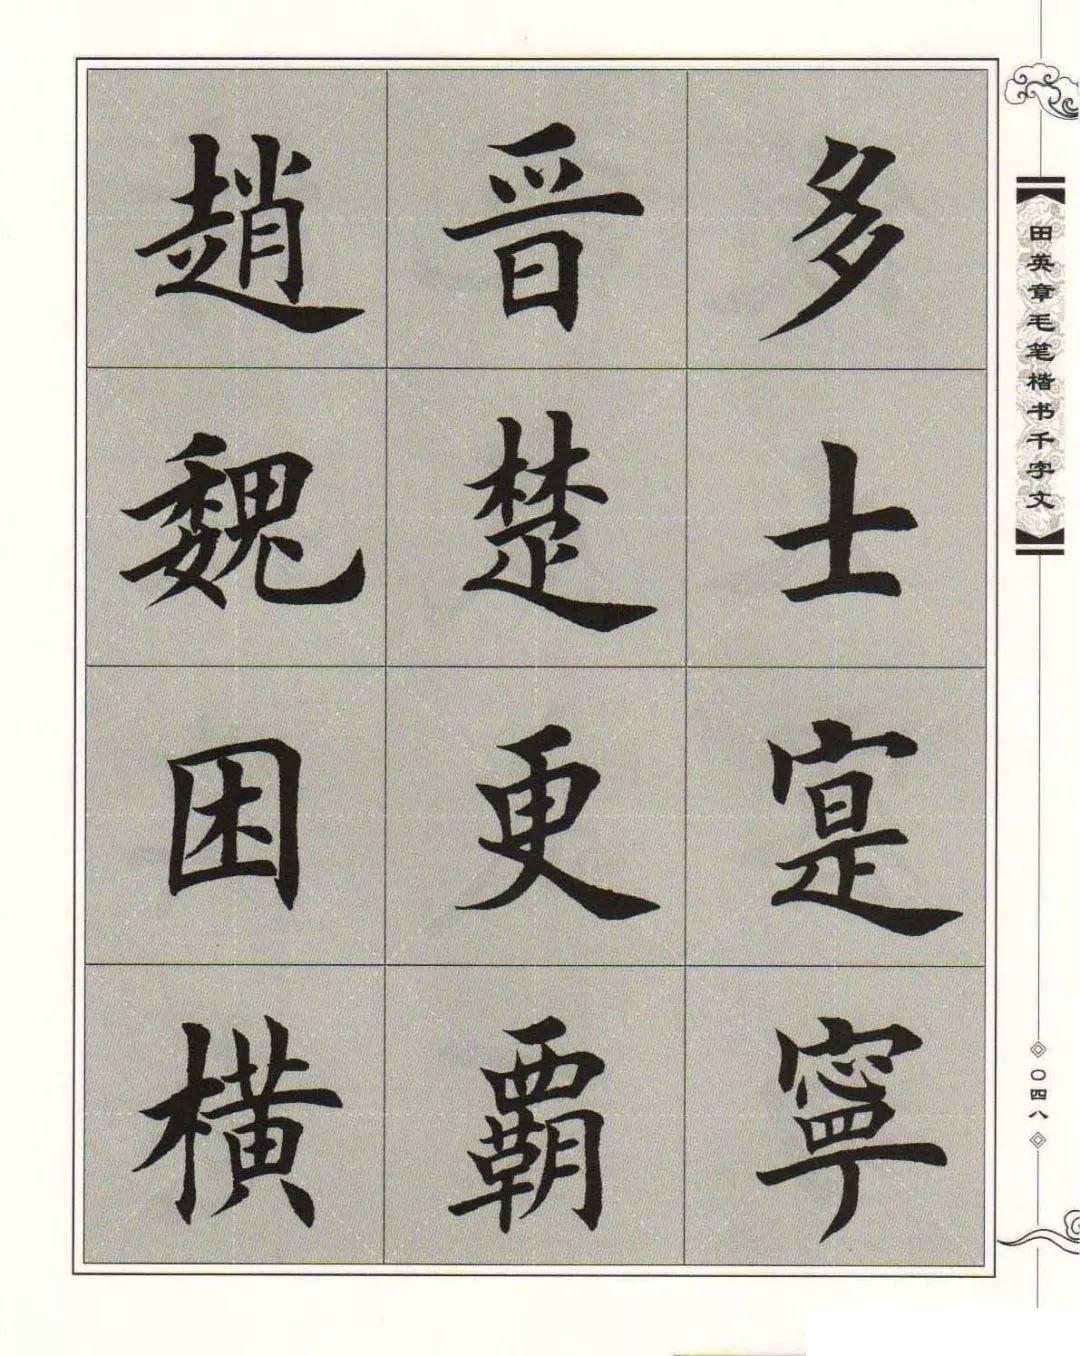 多士寔寧
晉楚更霸
趙魏困橫
田英章毛笔楷书千字文
〇四八